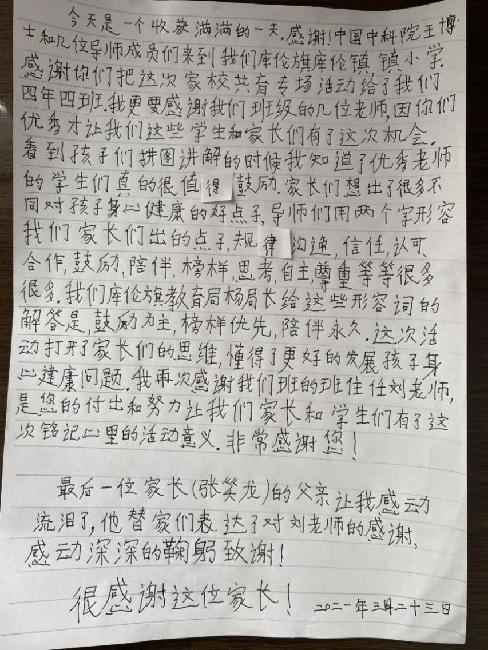 今天是一个收获满满的一天.感谢!中国中科院王博
士和几位导师成员们来到我们库伦旗库伦镇 镇小学.
感谢你们把这次家校共育专场活动给了我们
四年四班.我更要感谢我们班级的几位老师,因你们
优秀才让我们这些学生和家长们有了这次机会.
看到孩子们拼图讲解的时候我知道了优秀老师
的学生们真的很值得鼓励.家长们想出了很多不
同对孩子身心健康的好点子,导师们用两个字形容
我们家长们出的点子,规律沟通,信任,认可
合作,鼓励,陪伴,榜样思考,自主,尊重等等很多
很多,我们库伦旗教育局杨局长给这些形容词的
解答是,鼓励为主,榜样优先,陪伴永久.这次活
动打开了家长们的思维,懂得了更好的发展孩子身
心健康问题.我再次感谢我们班的班住任刘老师,
是您的付出和努力让我们家长和学生们有了这
次铭记心里的活动意义.非常感谢您!
最后一位家长(张笑龙)的父亲让我感动
流泪了,他替家们表达了对刘老师的感谢,
感动深深的鞠躬致谢!
很感谢这位家长!
二〇二一年三月二十三日